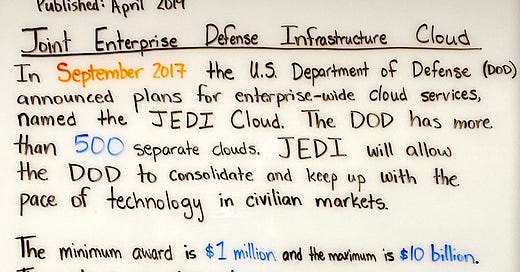 Published: April 2019
Joint Enterprise Defense Infrastructure Cloud
In September 2017 the U.S. Department of Defense (DOD)
announced plans for enterprise-wide cloud services,
named the JEDI Cloud. The DOD has more
than 500 separate clouds. JEDI will allow
the DOD to consolidate and keep up with the
pace of technology in civilian markets.
The minimum award is $1 million and the maximum is $10 billion.